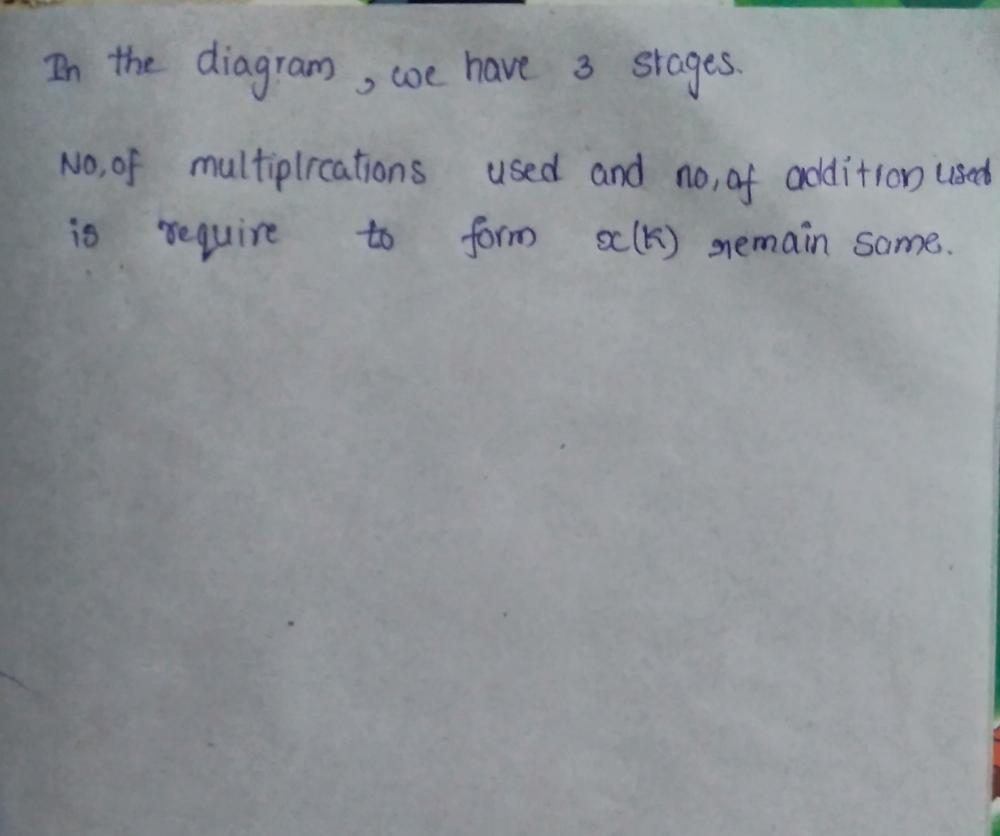 In the diagram, we have 3 stages.
No, of multiplications used and no, of addition used
is require to form x(k) remain same.